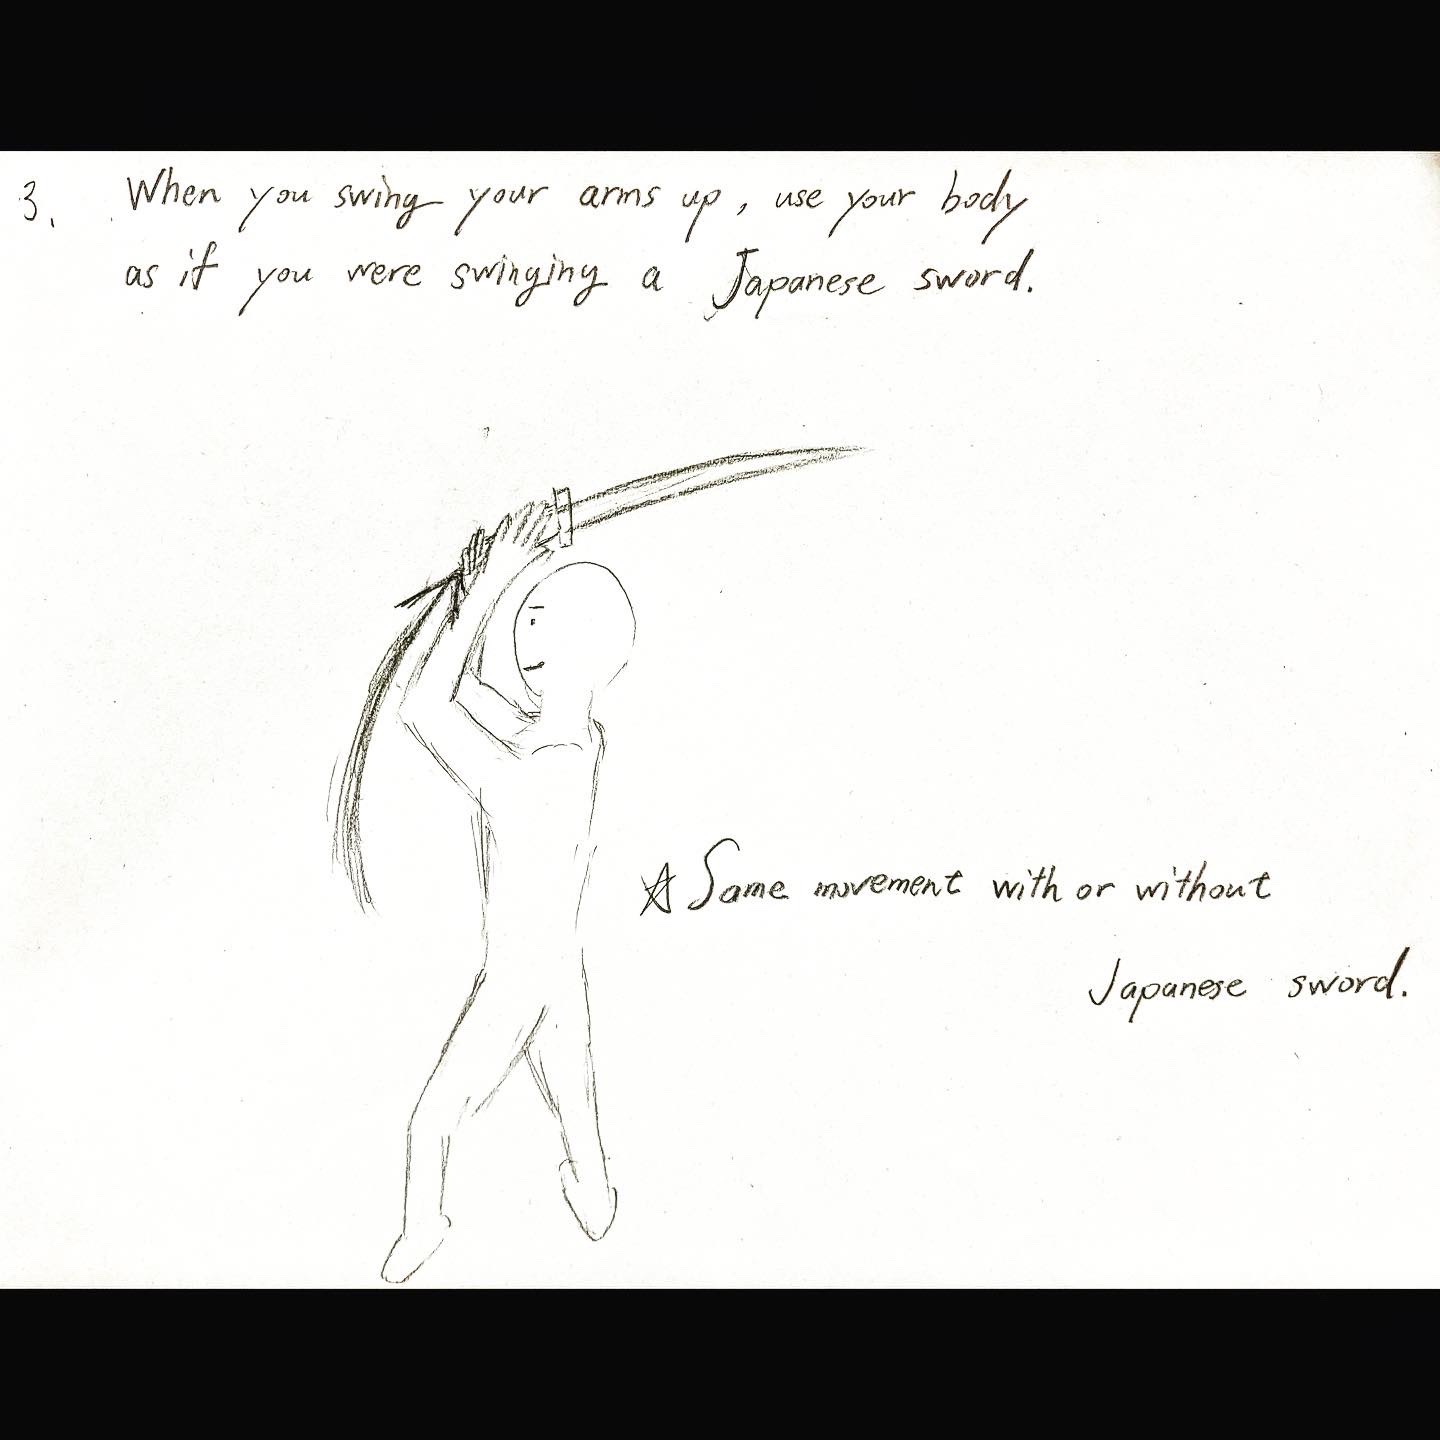 3. When you swing your arms up, use your body
as if you were swinging a Japanese sword.
☆ Same movement with or without
Japanese sword.